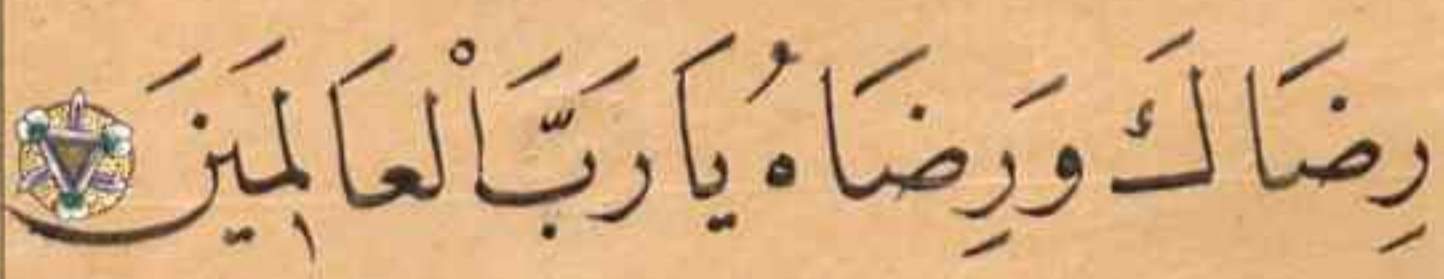 رِضَاكَ وَرِضَاهُ يَا رَبَّ الْعَالَمِينَ